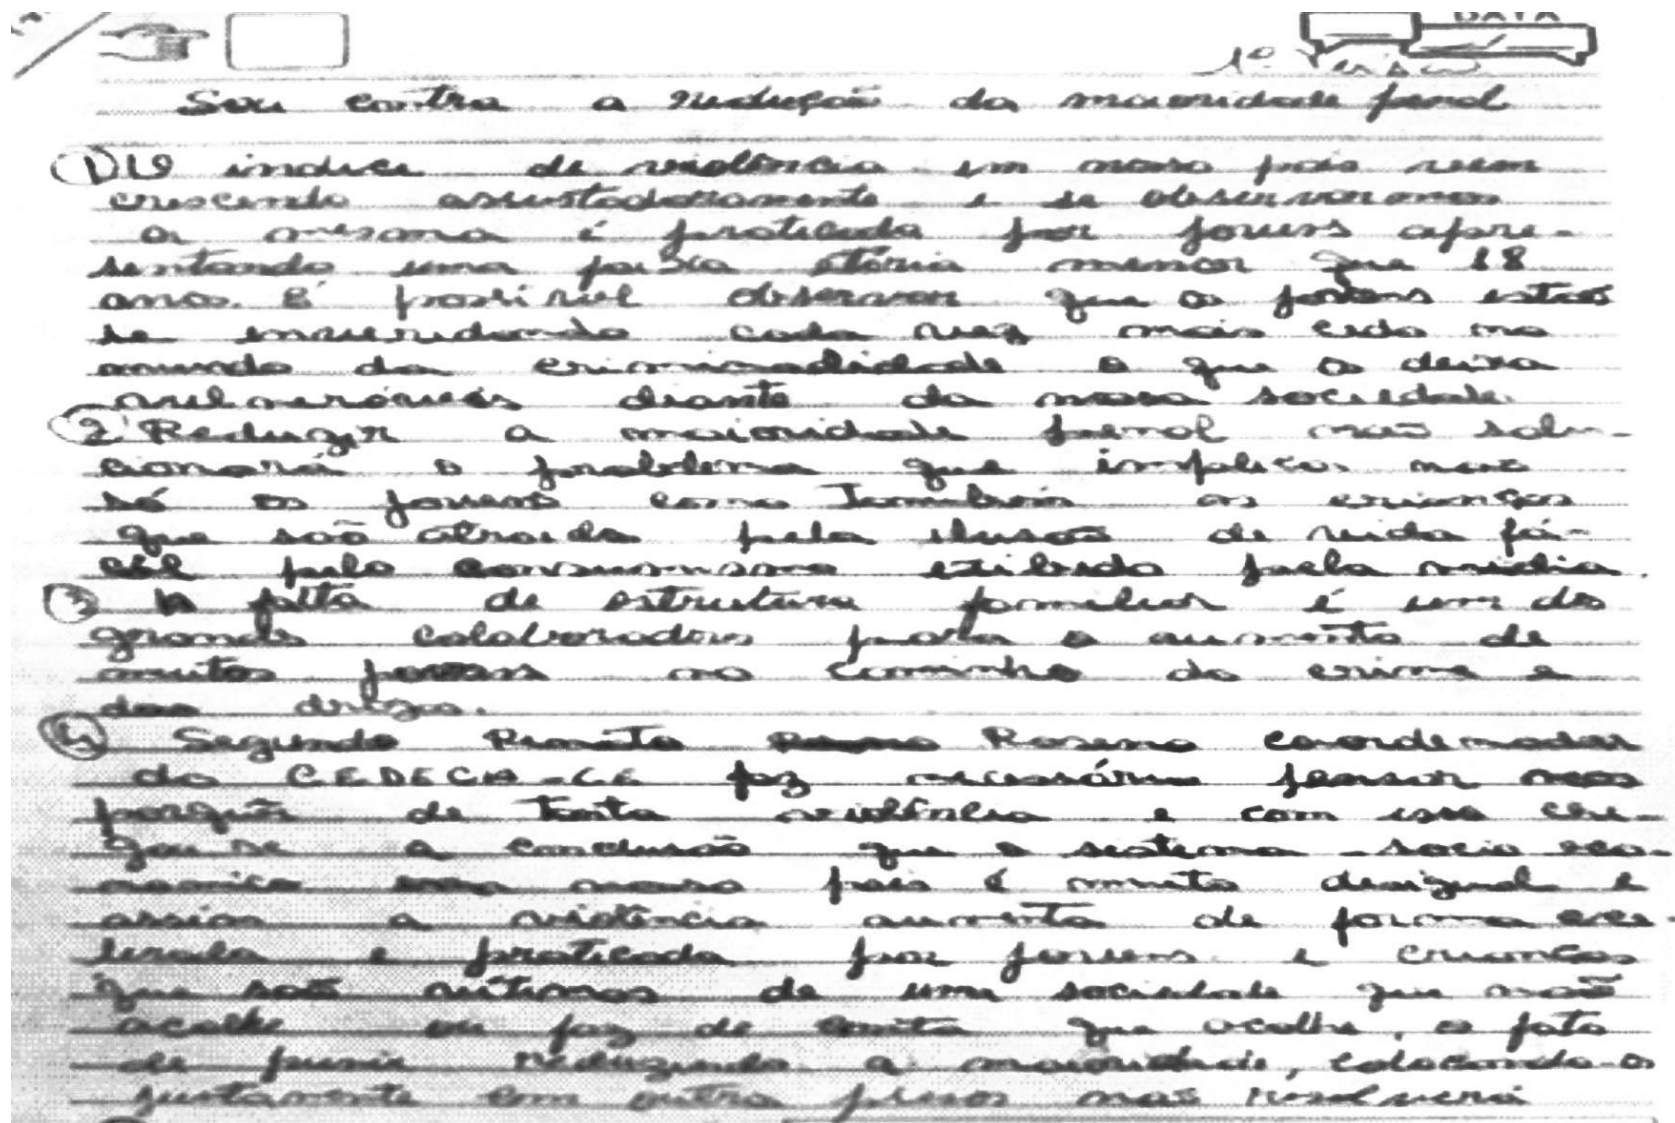 DATA
1ª Versão
Sou contra a redução da maioridade penal
1) O indice de violência em nosso país vem
crescendo assustadoramente e se observarmos
a mesma é praticada por jovens apre-
sentando uma faixa etária menor que 18
anos. É possivel observar que os jovens estão
se enveredando cada vez mais cedo no
mundo da criminalidade o que os deixa
vulneráveis diante da nossa sociedade.
2 Reduzir a maioridade penal não solu-
cionará o problema que implica não
só os jovens como também as crianças
que são atraida pela ilusão de vida fá-
cil pelo consumismo exibido pela midia.
3 A falta de estrutura familiar é um dos
grandes colaboradores para o aumento de
muitos jovens no caminho do crime e
das drogas.
4 Segundo Renato Roseno coordenador
do CEDECA-CE faz necessário pensar nos
porquês de tanta violência e com isso che-
gou se a conclusão que o sistema socio eco-
nomico nosso país é muito desigual e
assim a violência aumenta de forma ace-
lerada e praticada por jovens e crianças
que são vítimas de uma sociedade que não
acolhe ou faz de conta que acolhe, o fato
de punir reduzindo a maioridade, colocando-os
justamente com outros presos não resolverá